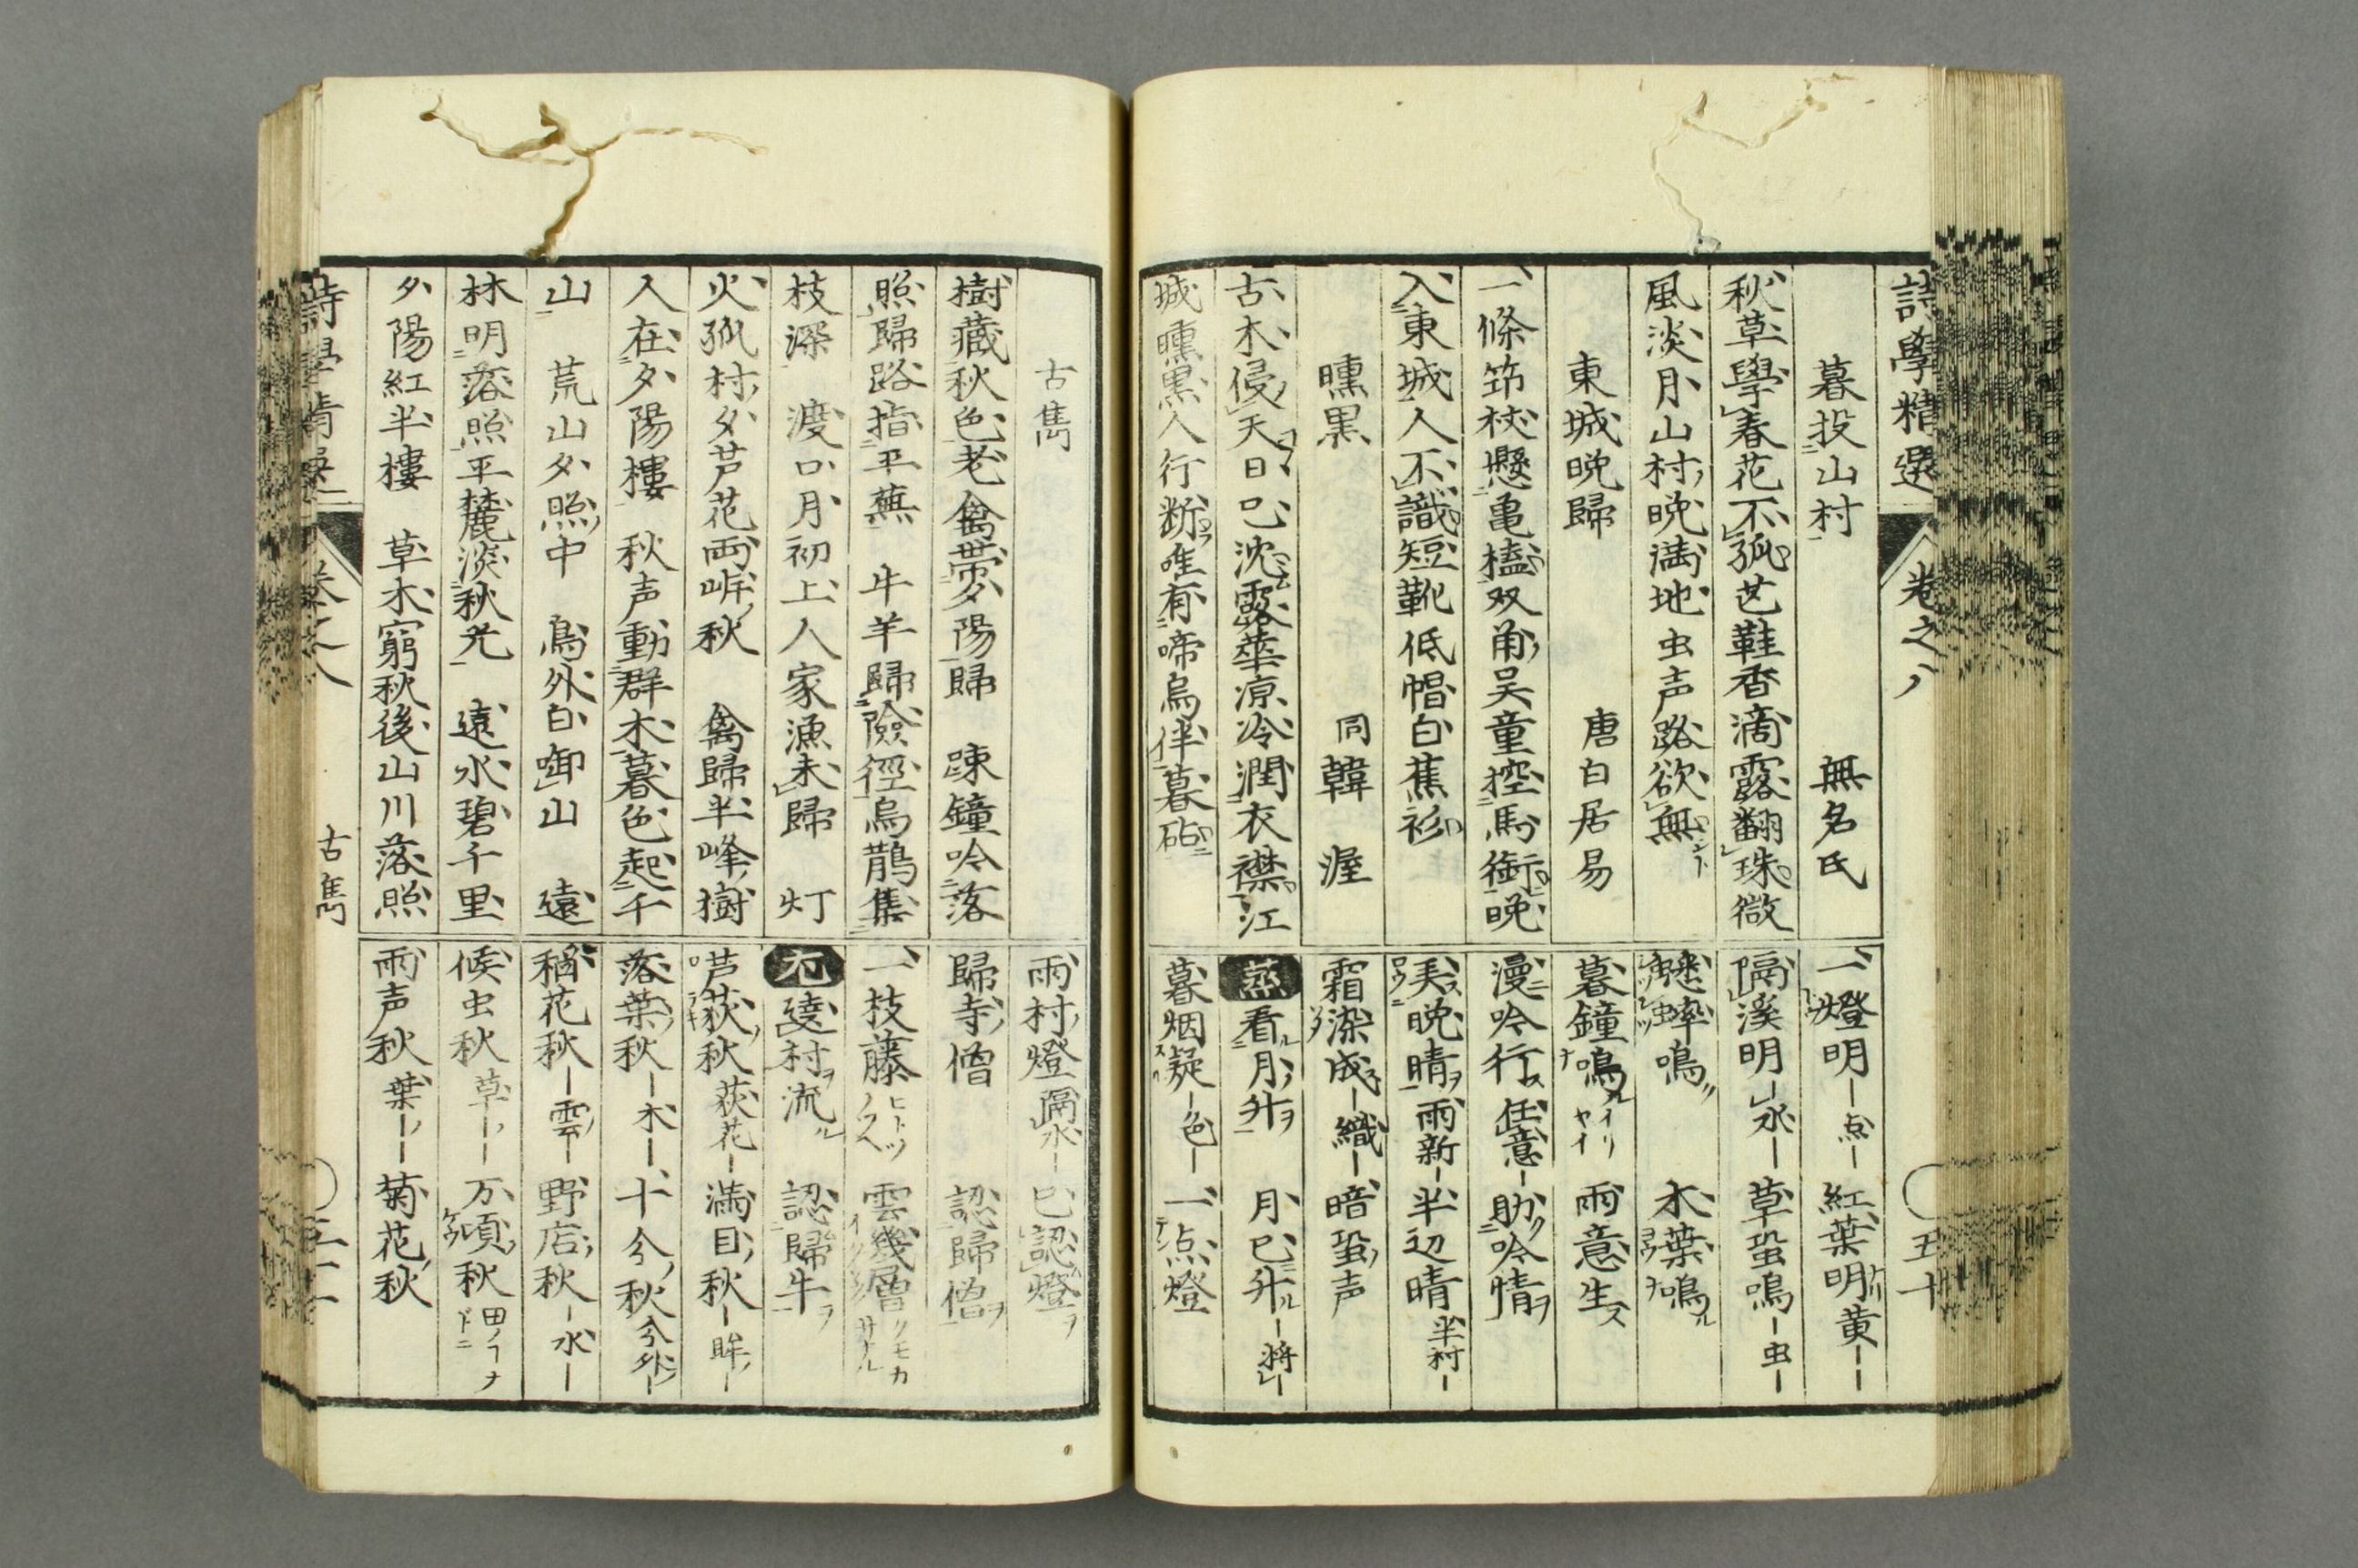 詩學精選
卷之八
五十
暮投山村 無名氏
秋草學春花不孤芒鞋香滴露翻珠微
風淡月山村晚満地虫声路欲無
東城晩歸 唐白居易
一條筇杖懸亀榼双角吴童控馬銜晚
入東城人不識短靴低帽白蕉衫
曛黒 同韓渥
古木侵天日已沈露華凉冷潤衣襟江
城曛黒人行断唯有啼烏伴暮砧
一燈明 点 紅葉明 黄
隔溪明 水 草蛩鳴 虫
蟋蟀鳴 木葉鳴
暮鐘鳴 イリヤイ 雨意生
漫吟行 任意 助吟情
美晩晴 雨新 半辺晴 半村
霜染成 織 暗蛩声
蒸 看月升 月已升 将
暮烟凝 色 一点燈
古雋
樹藏秋色老禽帶夕陽歸 踈鐘吟落
照歸路指平蕪 牛羊歸險徑烏鵲集
枝深 渡口月初上人家漁未歸 灯
火孤村夕芦花両岍秋 禽歸半峰樹
人在夕陽樓 秋声動群木暮色起千
山 荒山夕照中 鳥外白啣山 遠
林明落照平麓淡秋光 遠水碧千里
夕陽紅半樓 草木窮秋後山川落照
雨村燈 隔水 已認燈
歸寺僧 認歸僧
一枝藤 ヒトツノフヘ 雲幾層 クモカサナル
尤 遶村流 認歸牛
芦荻秋 荻花 満目秋 眸
落葉秋 木 十分秋 分外
稻花秋 雲 野店秋 水
候虫秋 草 万頃秋
雨声秋 葉 菊花秋
詩學精選
卷之八
古雋